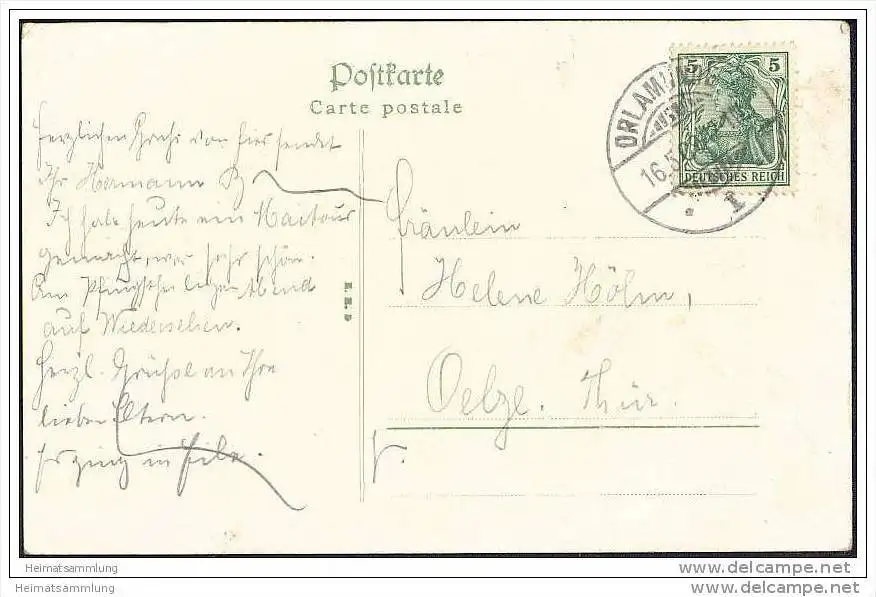 Postkarte
Carte postale
5 5
ORLAMÜNDE
16.5
DEUTSCHES REICH
Herzlichen Gruß von hier sendet
Ihr Hermann
Ich habe heute ein Maitour
gemacht, war sehr schön.
Am Pfingstheiligenabend
auf Wiedersehen.
Herzl. Grüße an Ihre
lieben Eltern.
in Eile.
Fräulein
Helene Höhn,
Oelze. Thür.
Heimatsammlung
www.delcampe.net
Heimatsammlung
www.delcampe.net